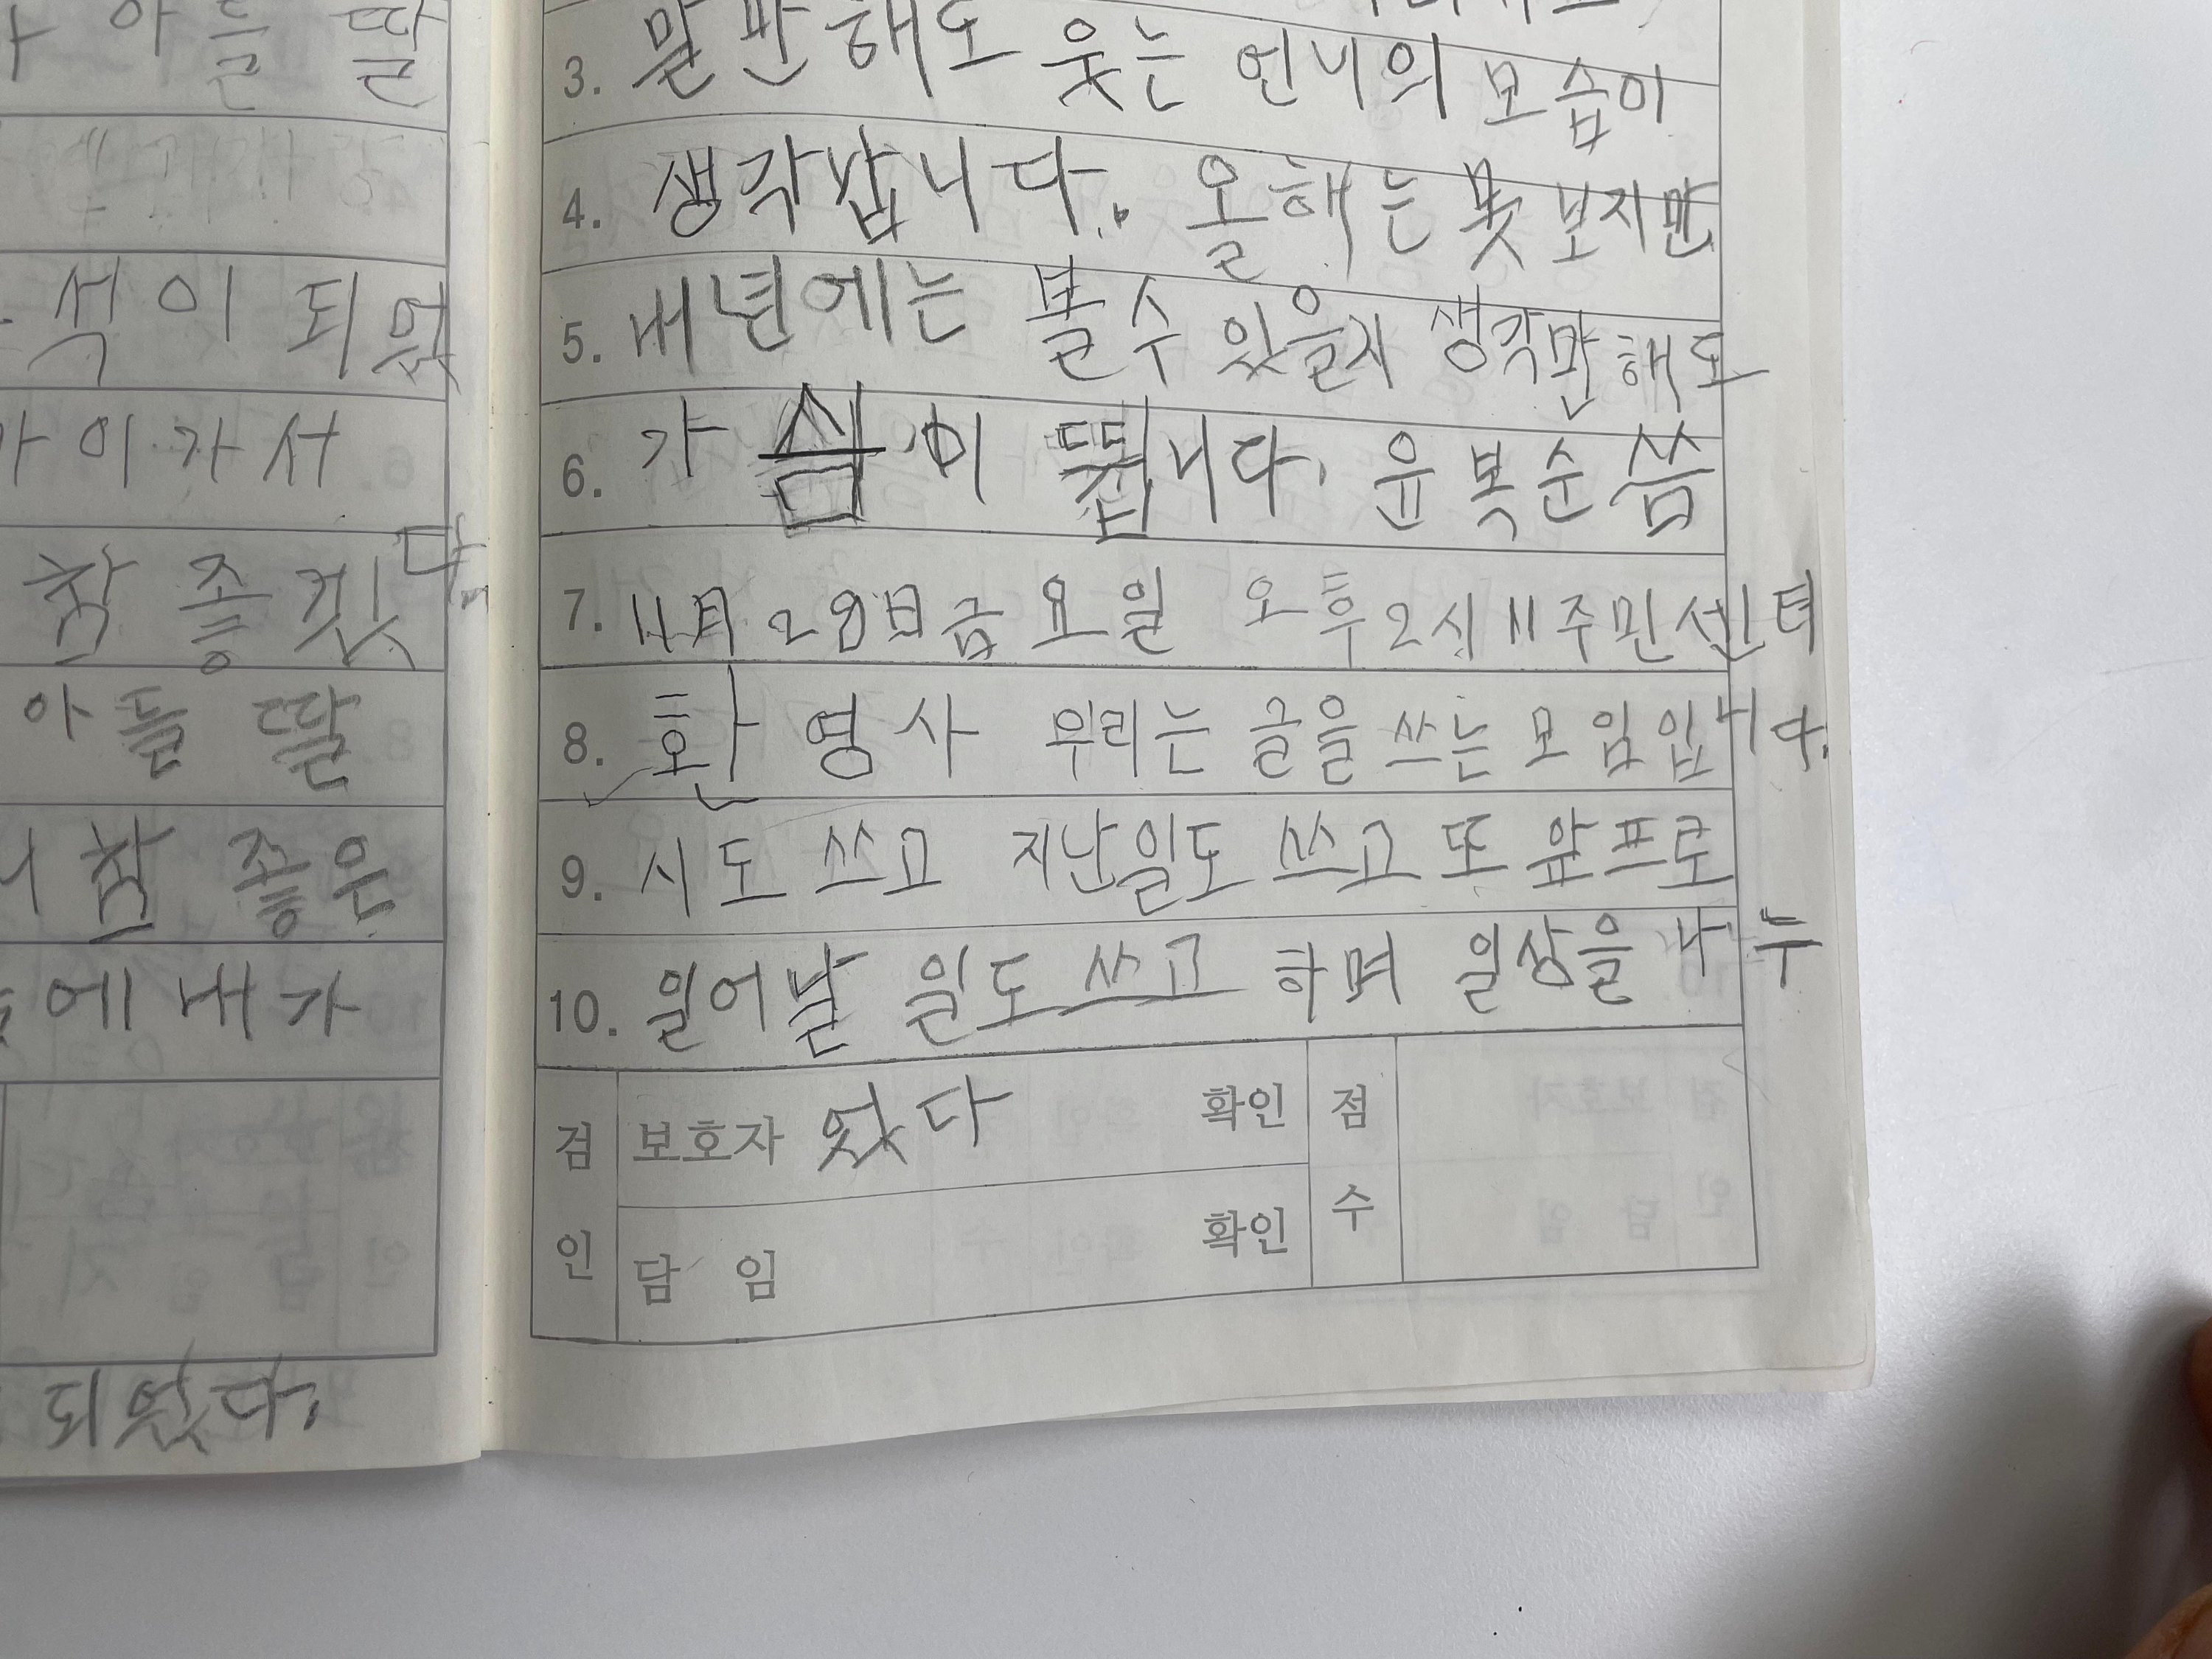 아들 딸
석이 되었
가이가서
참 좋겠다.
아들 딸
참 좋은
에 내가
검인 보호자 었다 확인 점수
담 임 확인
되었다.
3. 말만해도 웃는 언니의 모습이
4. 생각납니다. 올해는 못 보지만
5. 내년에는 볼수 있을지 생각만해도
6. 가슴이 뜁니다. 유복순 씀
7. 11月 28日 금요일 오후2시 11주민센터
8. 환영사 우리는 글을 쓰는 모임입니다.
9. 시도 쓰고 지난일도 쓰고 또 앞프로
10. 일어날 일도 쓰고 하며 일상을 나누